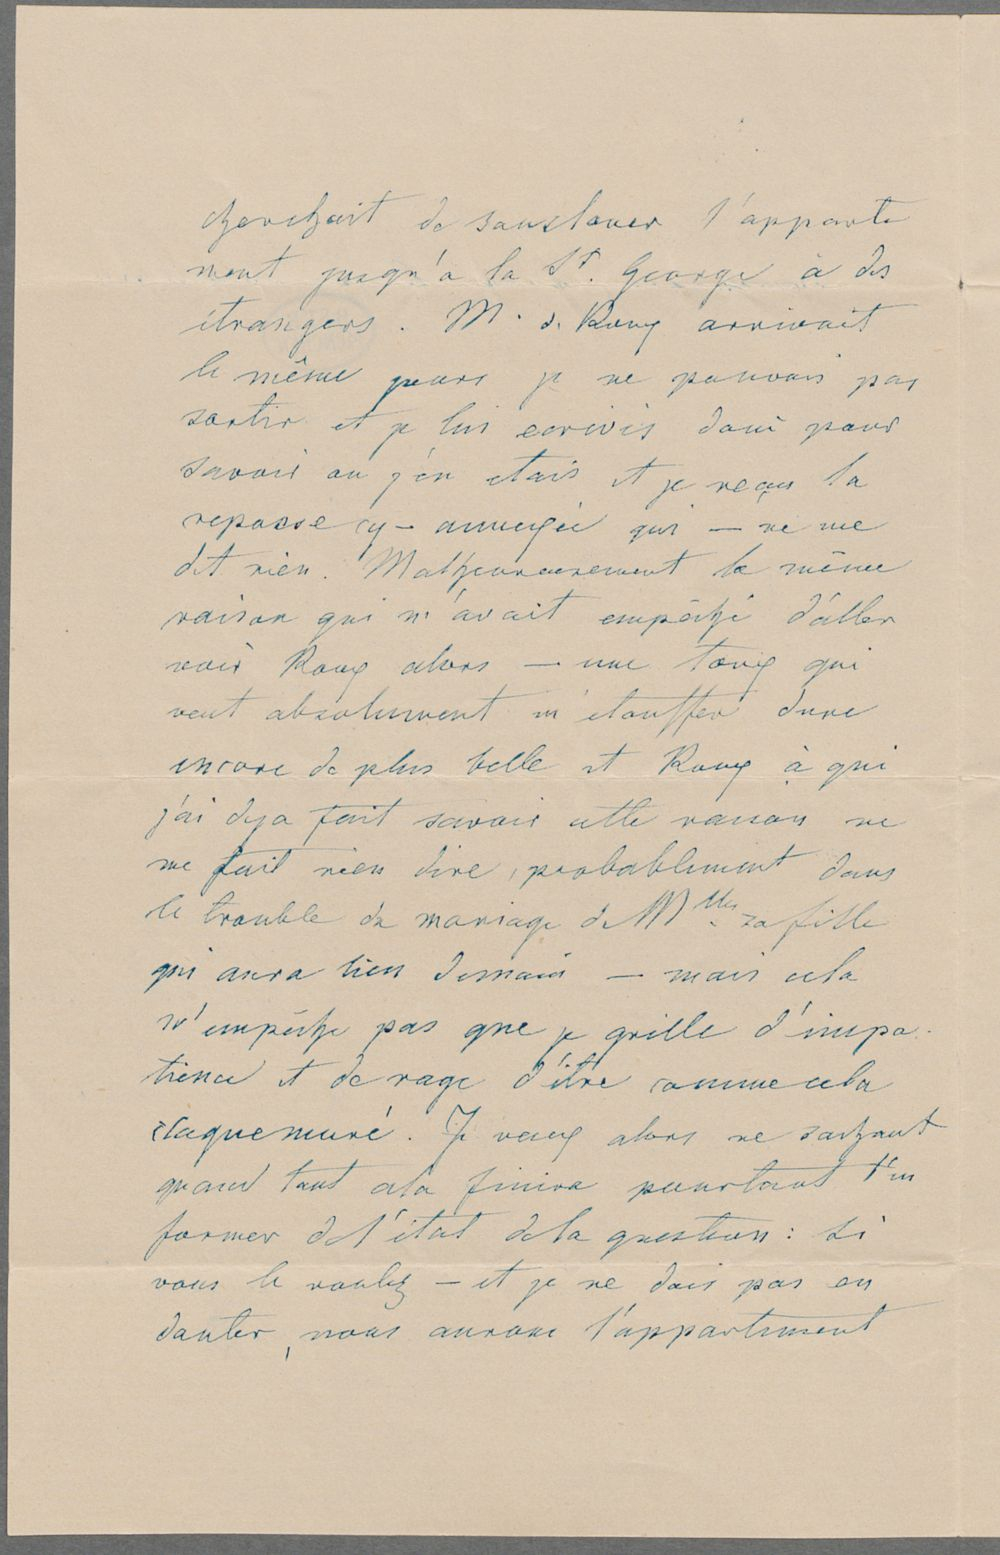 cherchait de souslouer l'apparte
ment jusqu'a la St. George à des
étrangers. M. de Roux arrivait
le même jour je ne pouvais pas
sortir et je lui ecrivis donc pour
savoir ou j'en etais et je reçus la
reponse cy-annexée qui — ne me
dit rien. Malheureusement la même
raison qui m'avait empêché d'aller
voir Roux alors — une toux qui
veut absolument m'etouffer dure
encore de plus belle et Roux à qui
j'ai deja fait savoir cette raison ne
me fait rien dire, probablement dans
le trouble du mariage de Mlle sa fille
qui aura lieu demain — mais cela
n'empêche pas que je grille d'impa-
tience et de rage d'être comme cela
claquemuré. Je veux alors ne sachant
quand tout cela finira pourtant t'in
former de l'état de la question: si
vous le voulez — et je ne dois pas en
douter, nous aurons l'appartement